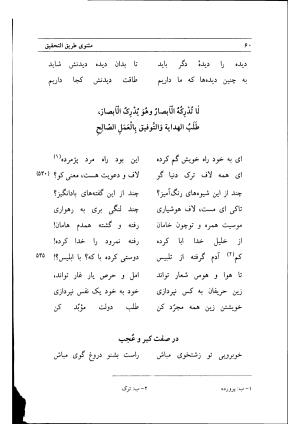 ۶۰ مثنوی طریق التحقیق
دیده را دیدهٔ دگر باید تا بدان دیده دیدنش شاید
به چنین دیده‌ها که ما داریم طاقت دیدنش کجا داریم
لَا تُدْرِکُهُ الْأَبصارُ وهُوَ یُدْرِکُ الْأَبصارَ،
طَلَبُ الهدایة والتَّوفیقِ بِالْعَمَلِ الصّالِحِ
ای به خود راه خویش گم کرده این بود راه مرد پژمرده(۱)
ای همه لاف ترک دنیا گر لاف و دعویت هست، معنی کو؟ (۵۳۰)
چند از این شیوه‌های رنگ‌آمیز؟ چند از این گفته‌های بادانگیز؟
تاکی ای مست، لاف هوشیاری چند لنگی بری به رهواری
موسیت همره و توجوی خامان رفته و گشته همدم هامان!
از خلیل خدا ابا کرده رفته نمرود را خدا کرده!
کم(۲) آدم گرفته از تلبیس دوستی کرده با که؟ با ابلیس؟! ۵۳۵
تا هوا و هوس شعار تواند امل و حرص یار غار تواند،
زین حریفان به کس نپردازی خود به خود یک نفس نپردازی
خویشتن زین همه مجرّد کن طلب دولت مؤبّد کن
در صفت کبر و عُجب
خوبرویی تو زشتخوی مباش راست بشنو دروغ گوی مباش
۱- ب: پرورده ۲- ب: ترک